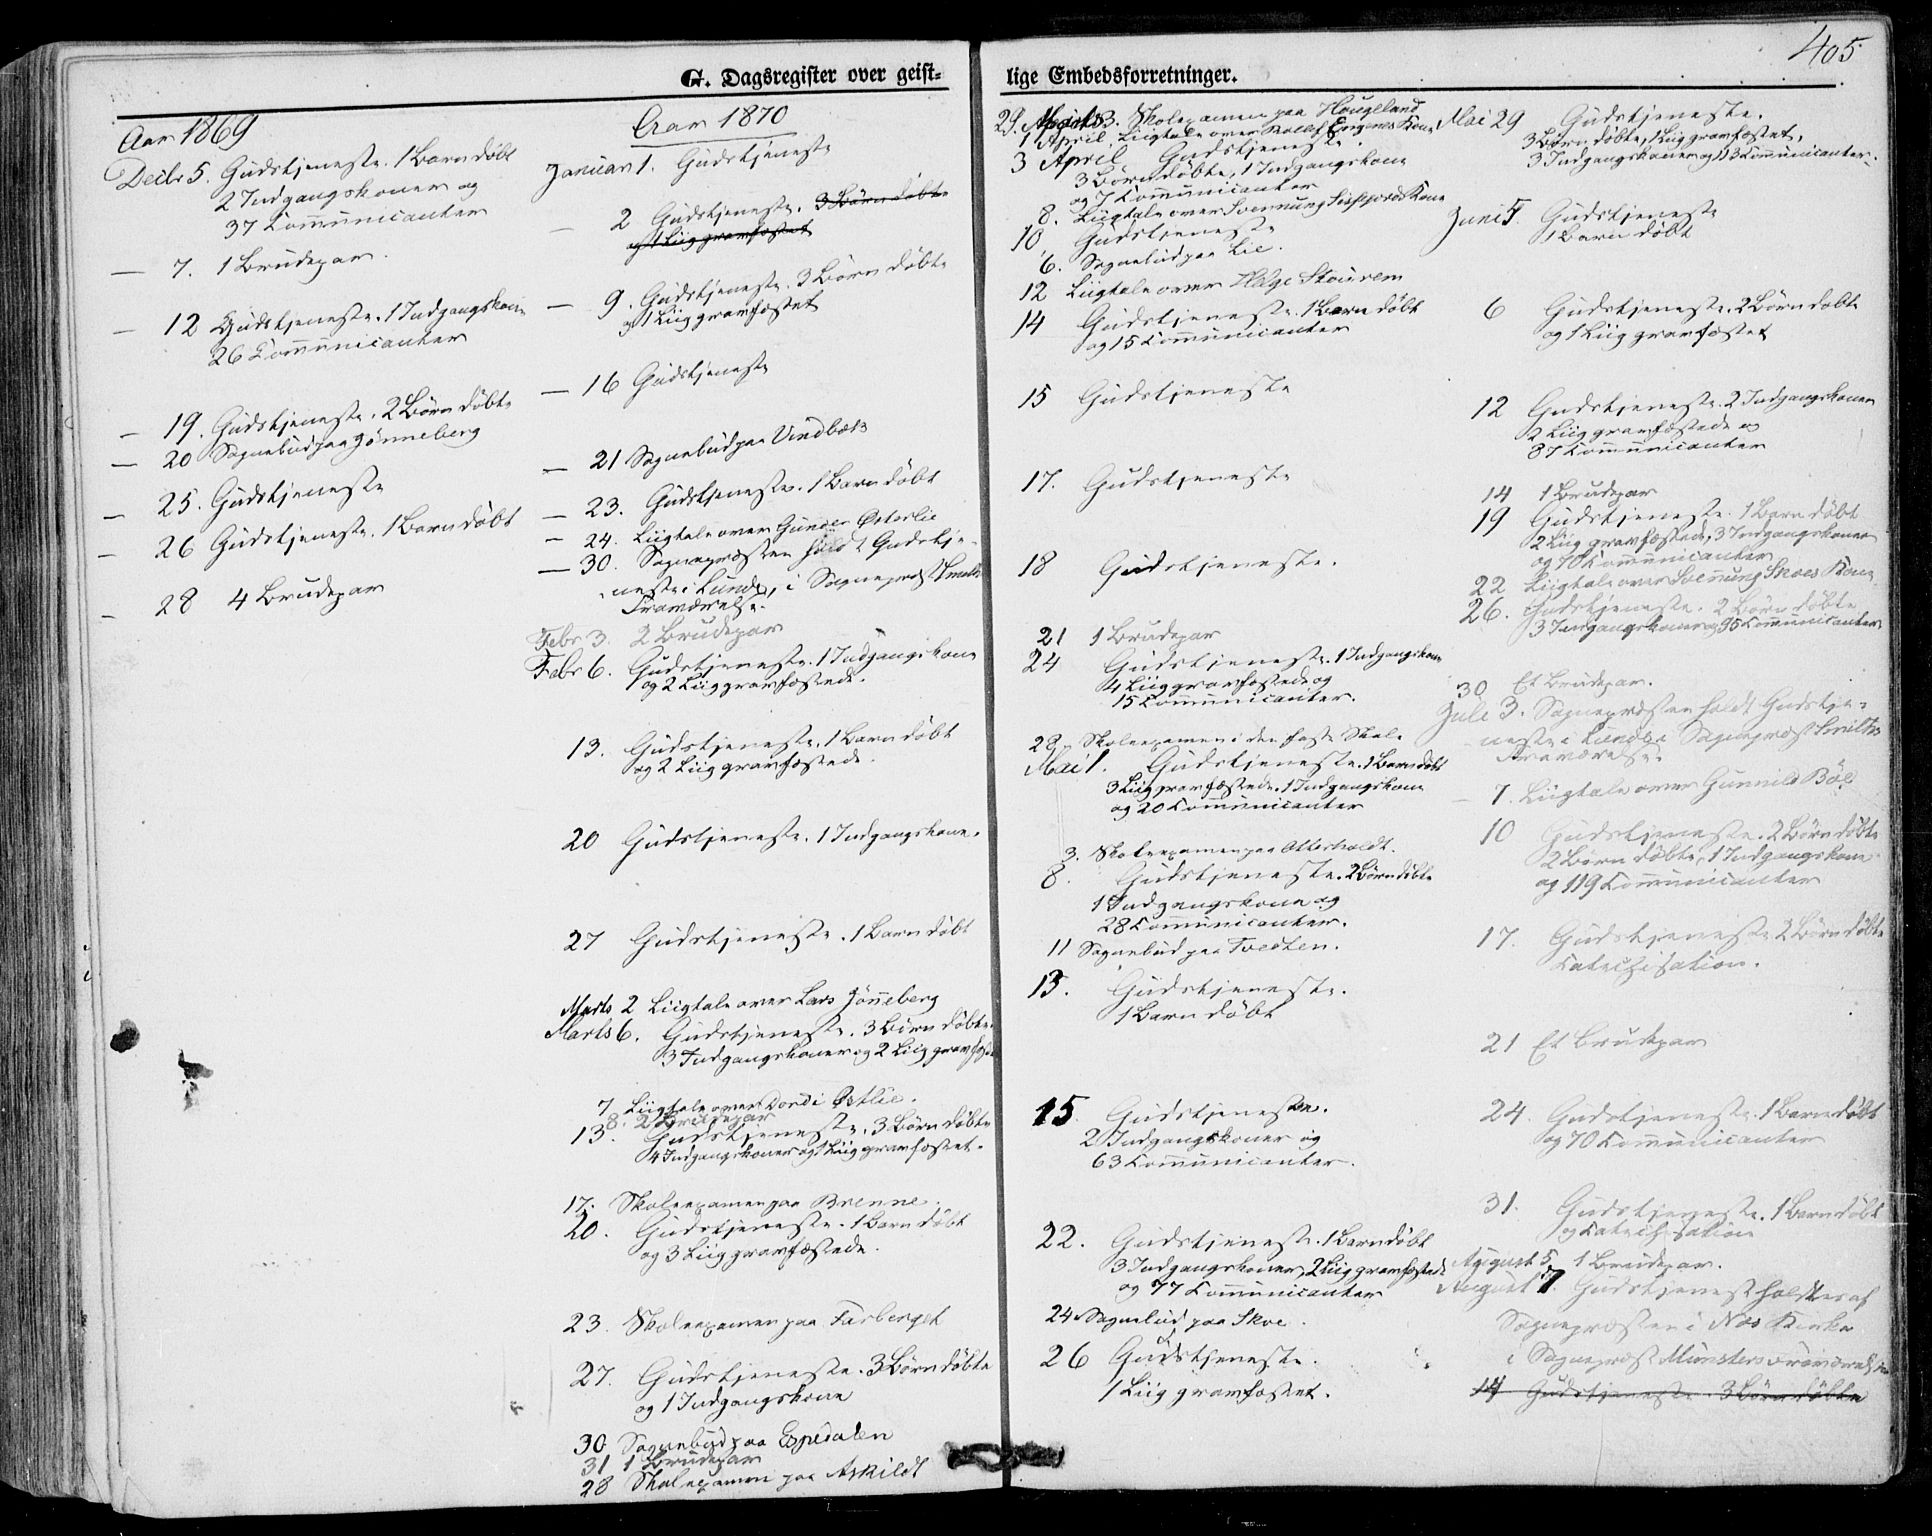 405
G. Dagsregister over geist-
lige Embedsforretninger.
Aar 1869
Decbr 5. Gudstjeneste. 1 Barn døbt
2 Indgangskoner og
37 Communicanter
— 7. 1 Brudepar.
— 12 Gudstjeneste. 1 Indgangskone
26 Communicanter
— 19. Gudstjeneste. 2 Børn døbte
— 20 Sognebud paa Jønneberg
— 25. Gudstjeneste
— 26 Gudstjeneste. 1 Barn døbt
— 28 4 Brudepar
Aar 1870
Januar 1. Gudstjeneste
— 2 Gudstjeneste. 3 Børn døbte
og 1 Liig gravfæstet
— 9. Gudstjeneste. 3 Børn døbte
og 1 Liig gravfæstet
— 16 Gudstjeneste
— 21 Sognebud paa Vindbæk
— 23. Gudstjeneste. 1 Barn døbt
— 24. Liigtale over Gunder Østerlie
— 30. Sognepræsten holdt Gudstje-
neste i Lunde, i Sognepræst Smiths
Fraværelse.
Febr 3. 2 Brudepar
Febr 6. Gudstjeneste. 1 Indgangskone
og 2 Liig gravfæstede.
13. Gudstjeneste. 1 Barn døbt
og 2 Liig gravfæstede.
20 Gudstjeneste. 1 Indgangskone.
27 Gudstjeneste. 1 Barn døbt
Marts 2 Liigtale over Lars Jønneberg
Marts 6. Gudstjeneste. 3 Børn døbte.
3 Indgangskoner og 2 Liig gravfæstede
7 Liigtale over Dordi Østlie.
8. 2 Brudepar
13. Gudstjeneste. 3 Børn døbte
4 Indgangskoner og 1 Liig gravfæstet.
17. Skoleexamen paa Brenne.
20. Gudstjeneste. 1 Barn døbt
og 3 Liig gravfæstede.
23. Skoleexamen paa Farberget
27. Gudstjeneste. 3 Børn døbte
og 1 Indgangskone
30 Sognebud paa Espedalen
31 1 Brudepar
28 Skoleexamen paa Askildt
29. Skoleexamen paa Hougland
1 April. Liigtale over Kone
3 April Gudstjeneste.
3 Børn døbte, 1 Indgangskone
og 7 Communicanter
8. Liigtale over Svennung Kone
10 Gudstjeneste
6. Sognebud paa Lie.
12 Liigtale over Helge Stourem
14 Gudstjeneste. 1 Barn døbt
og 15 Communicanter
15 Gudstjeneste
17. Gudstjeneste
18 Gudstjeneste.
21 1 Brudepar
24 Gudstjeneste. 1 Indgangskone
4 Liig gravfæstede og
15 Communicanter.
28. Skoleexamen i den faste Skole
Mai 1. Gudstjeneste. 1 Barn døbt
3 Liig gravfæstede. 1 Indgangskone
og 20 Communicanter
3. Skoleexamen paa Otterholdt.
8. Gudstjeneste. 2 Børn døbte
1 Indgangskone og
28 Communicanter.
11 Sognebud paa Tvedten.
13. Gudstjeneste.
1 Barn døbt
15 Gudstjeneste.
2 Indgangskoner og
63 Communicanter.
22. Gudstjeneste. 1 Barn døbt
3 Indgangskoner, 2 Liig gravfæstede
og 77 Communicanter
24 Sognebud paa Skoe.
26 Gudstjeneste.
1 Liig gravfæstet.
Mai 29 Gudstjeneste.
3 Børn døbte, 1 Liig gravfæstet,
3 Indgangskoner og 113 Communicanter.
Juni 5. Gudstjeneste
1 Barn døbt
6 Gudstjeneste. 2 Børn døbte
og 1 Liig gravfæstet
12 Gudstjeneste. 2 Indgangskoner
2 Liig gravfæstede og
87 Communicanter
14 1 Brudepar
19 Gudstjeneste. 1 Barn døbt
2 Liig gravfæstede, 3 Indgangskoner
og 70 Communicanter
22 Liigtale over Svennung Skoes Kone.
26. Gudstjeneste. 2 Børn døbte
3 Indgangskoner og 95 Communicanter
30 Et Brudepar.
Juli 3. Sognepræsten holdt Gudstje-
neste i Lunde i Sognepræst Smiths
Fraværelse.
— 7. Liigtale over Gunnild Bøe
10 Gudstjeneste. 2 Børn døbte
2 Børn døbte, 1 Indgangskone
og 119 Communicanter
17. Gudstjeneste 2 Børn døbte
Catechisation.
21 Et Brudepar
24. Gudstjeneste. 1 Barn døbt
og 70 Communicanter
31. Gudstjeneste. 1 Barn døbt
og Catechisation
August 5 1 Brudepar.
August 7. Gudstjenest holdtes af
Sognepræsten i Næs Kirke
i Sognepræst Münsters Fraværelse
14 Gudstjeneste. 3 Børn døbte